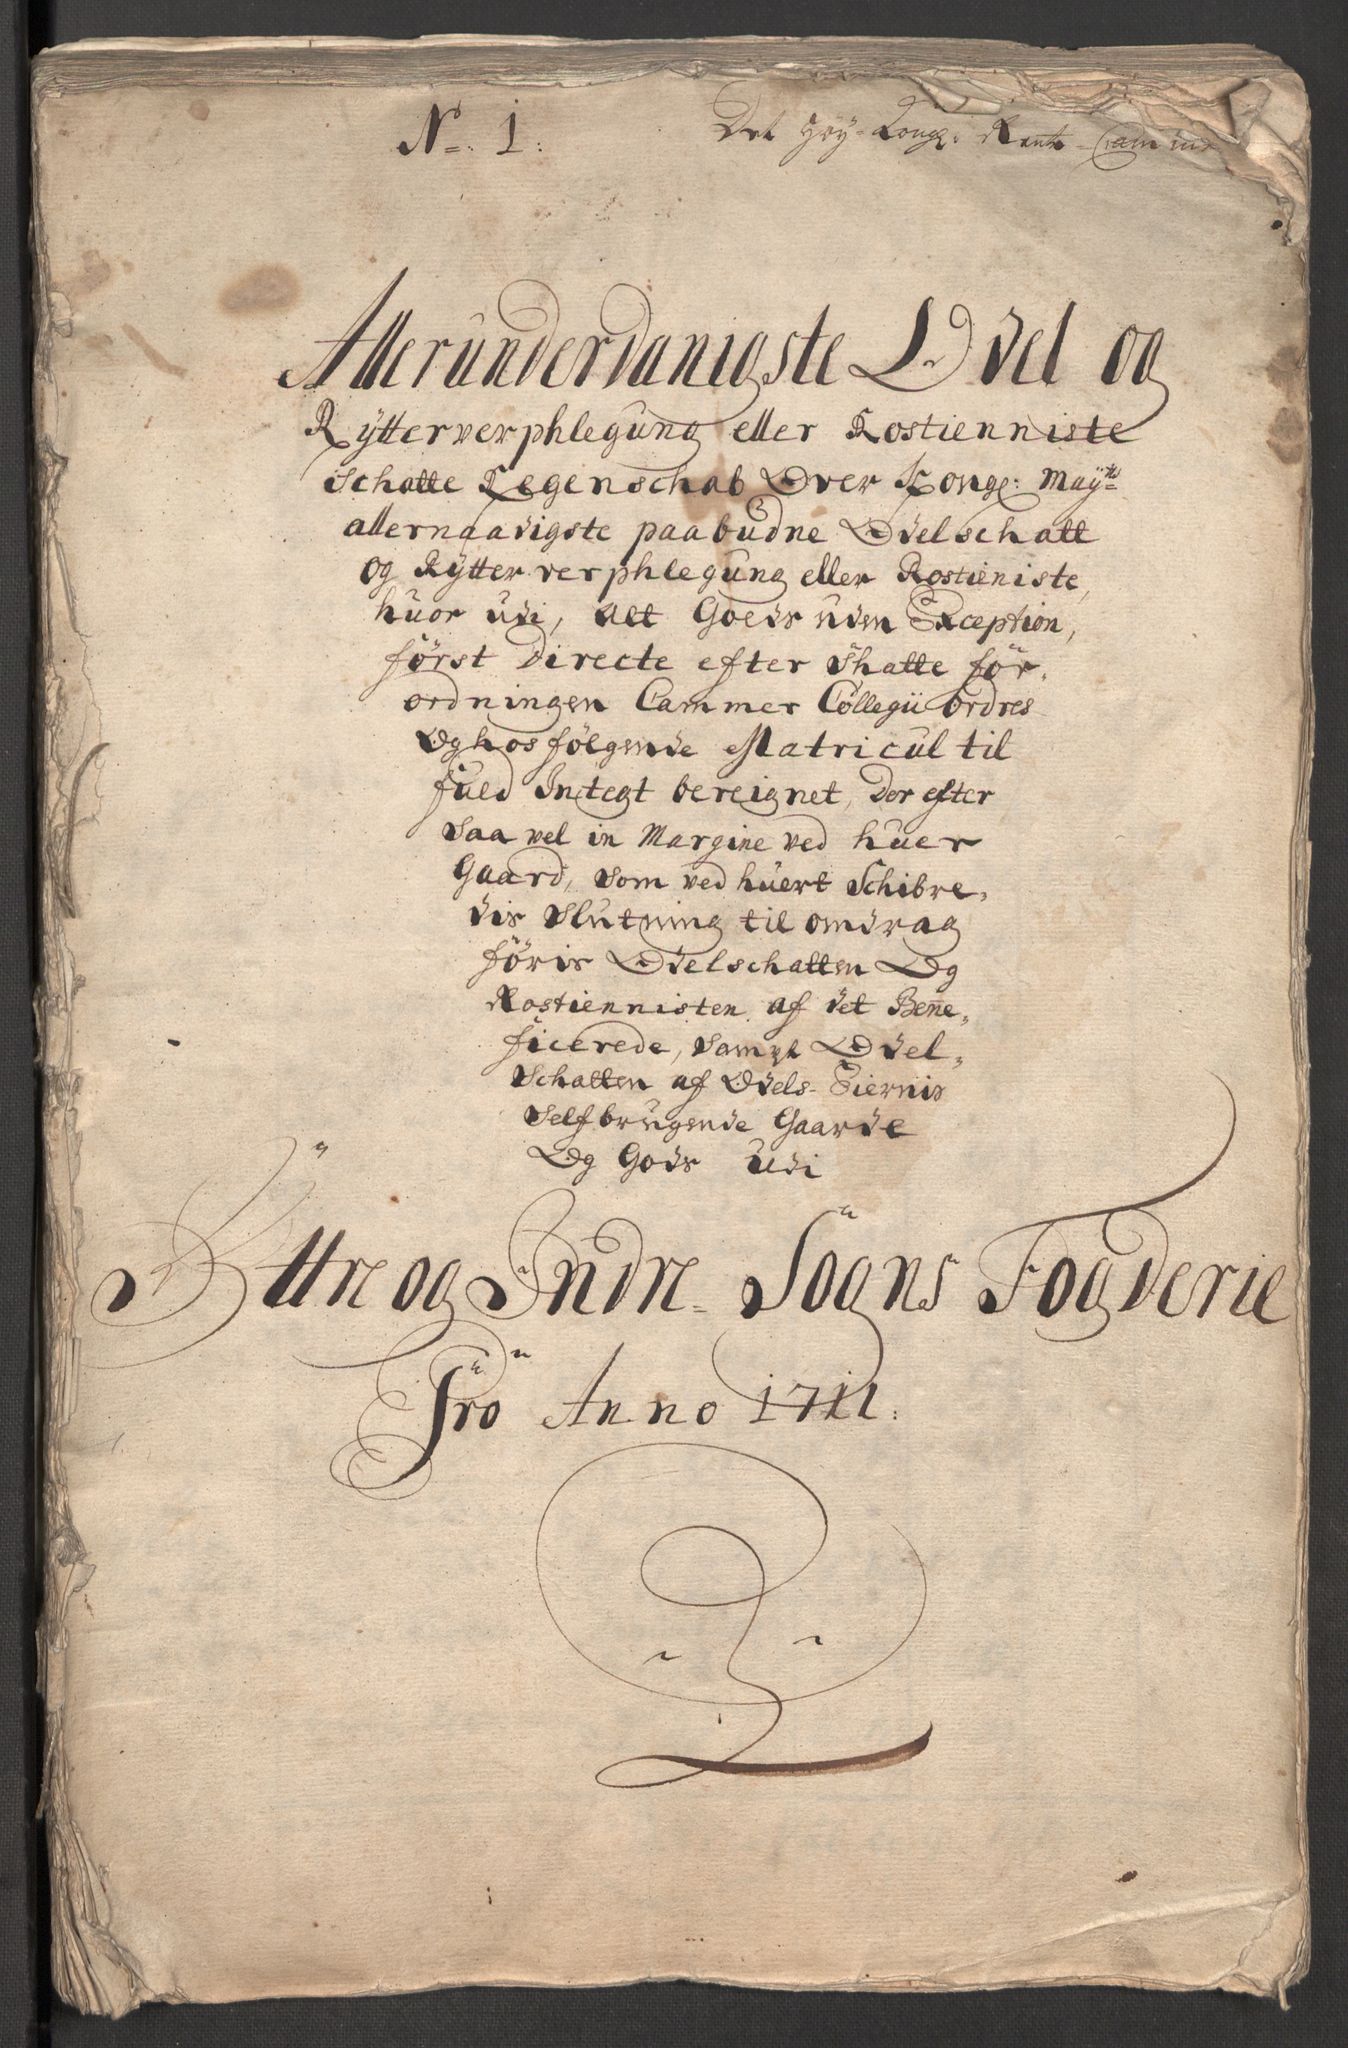 No. 1.
Det Höy-Kongl. Rente-Cammer
Allerunderdanigste Odel og
Rytterverphlegung eller Rostienniste
Schatte Regenschab Over Kongl: Mayts
allernaadigste paabudne Odelschatt
og Rytterverphlegung eller Rostieniste,
huor udi, alt Goeds uden Exception,
først directe efter Skatte for-
ordningen Cammer Collegii ordres
Og hosfölgende Matricul til
fuld Integt bereignet, Der efter
saa vel in Margine ved huer
Gaard, som ved huert Schibre-
dis slutning til omdrag
föris Odelschatten Og
Rostiennisten af det Bene-
ficerede, sampt Odel-
schatten af Odels-Eiernis
selfbrugende Gaarde
Og Gods udi
Yttre og Indre Sogns Fogderie
Pro Anno 1711.